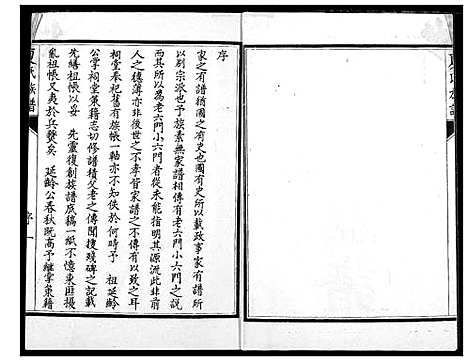 序
家之有譜猶國之有史也國有史所以載政事家有譜所
以別宗派也予族素無家譜相傳有老六門小六門之說
而其所以為老六門小六門者從未能指明其源流此非前
人之穗薄亦非後世之不孝皆家譜之不立有以致之耳
祠堂奉祀舊有族帳一軸亦不知佚於何時予 祖延齡
公掌祠堂築籍志切修譜積父老之傳聞搜殘碑之記載
先繕祖帳以妥 先靈復創族譜底稿一紙不憶東匪擾
亂祖帳又夷於兵燹矣 延齡公春秋既高予継掌築籍
夏氏族譜
序
一